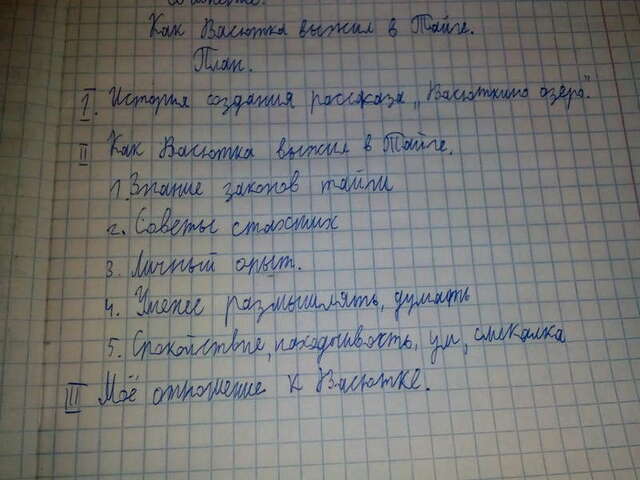 Как Васютка выжил в Тайге.
План.
I. История создания рассказа "Васюткино озеро".
II Как Васютка выжил в Тайге.
1. Знание законов тайги
2. Советы старших
3. Личный опыт.
4. Умение размышлять, думать
5. Спокойствие, находчивость, ум, смекалка
III Моё отношение к Васютке.